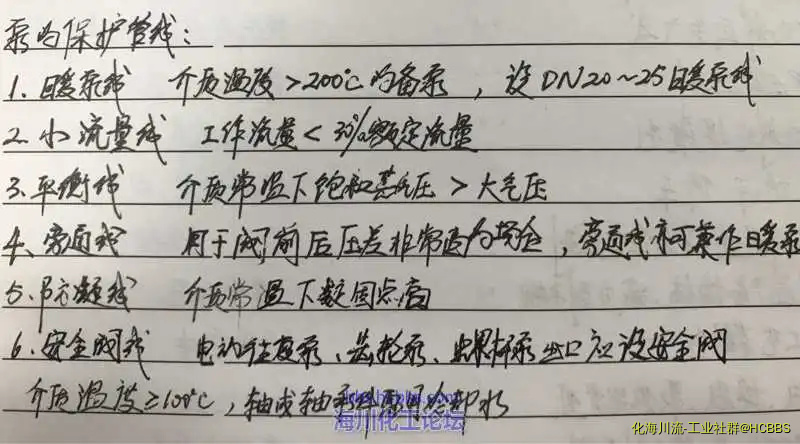 泵的保护管线:
1. 暖泵线 介质温度>200℃的备泵,设DN20~25暖泵线
2. 小流量线 工作流量<30%额定流量
3. 平衡线 介质常温下饱和蒸气压>大气压
4、旁通线 用于阀前后压差非常高的场合,旁通线亦可兼作暖泵
5. 防凝线 介质常温下凝固点高
6. 安全阀线 电动往复泵、齿轮泵、螺杆泵出口应设安全阀
介质温度≥100℃,轴或轴承 冷却水
海川化工论坛
化海川流-工业社群@HCBBS